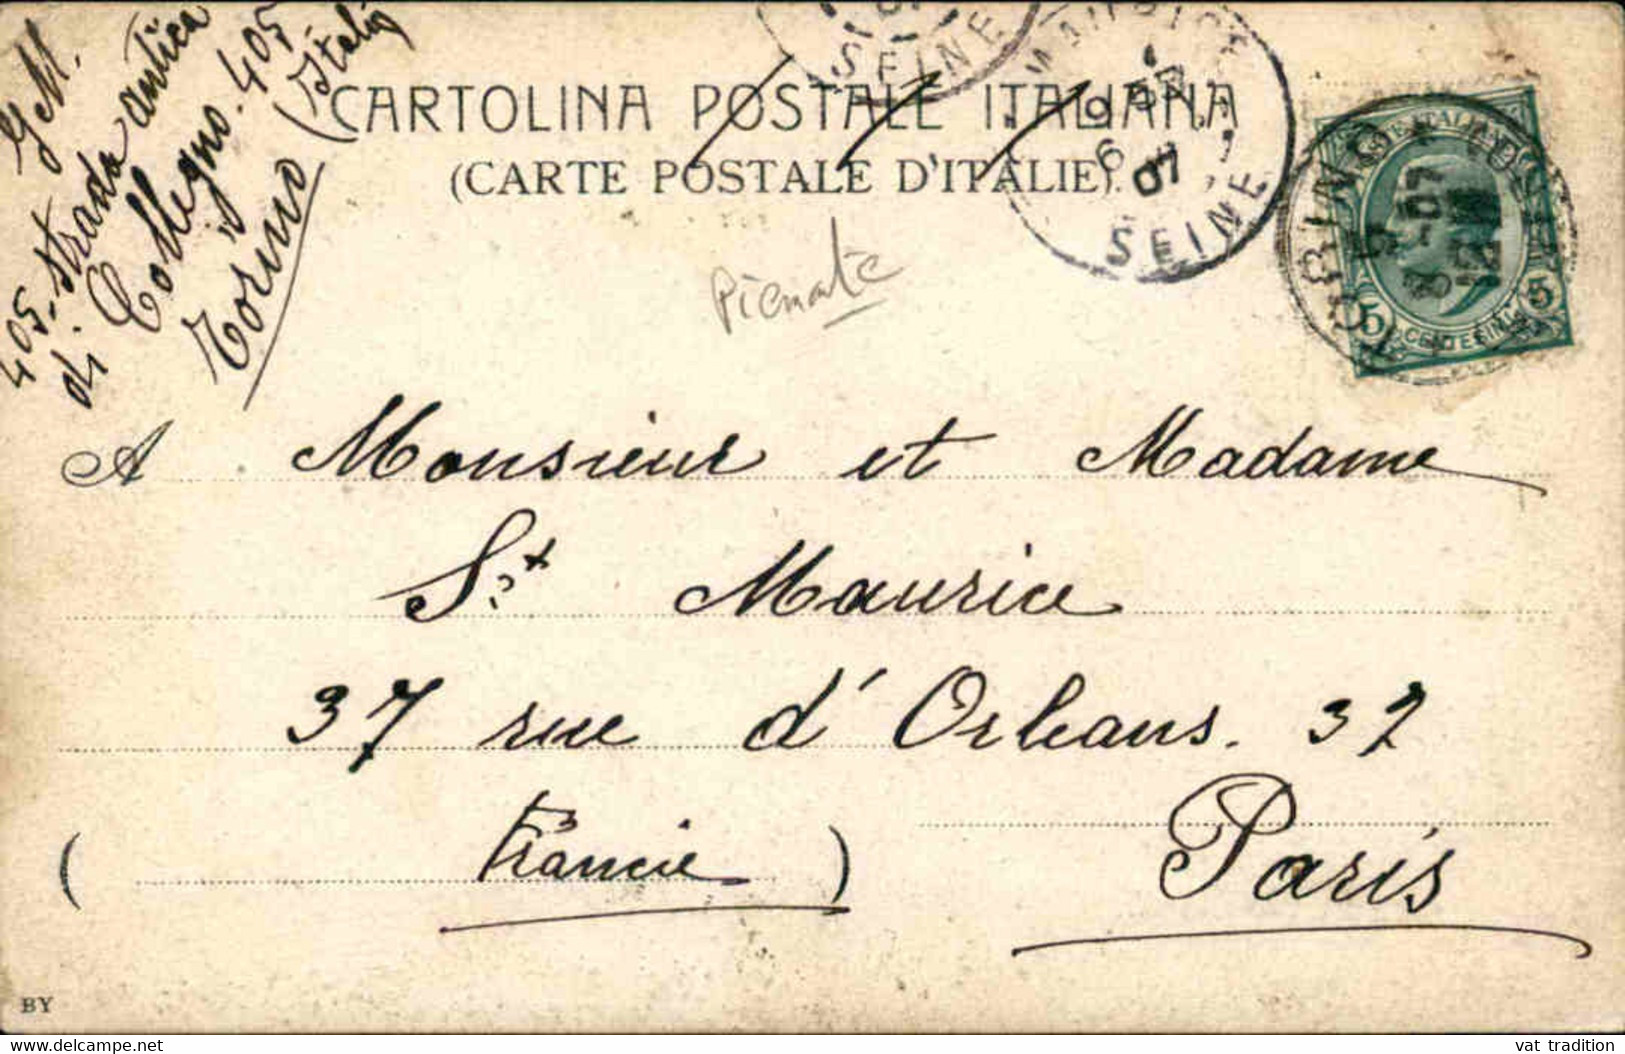 G.M.
405 - strada antica
di Collegno. 405
Torino (Italia)
CARTOLINA POSTALE ITALIANA
(CARTE POSTALE D'ITALIE).
SEINE
MAURICE
6
07
SEINE
TORINO
5 CENTESIMI 5
Piemonte
A Monsieur et Madame
St Maurice
37 rue d'Orleans. 32
Paris
(Francie)
BY
vat tradition
www.delcampe.net